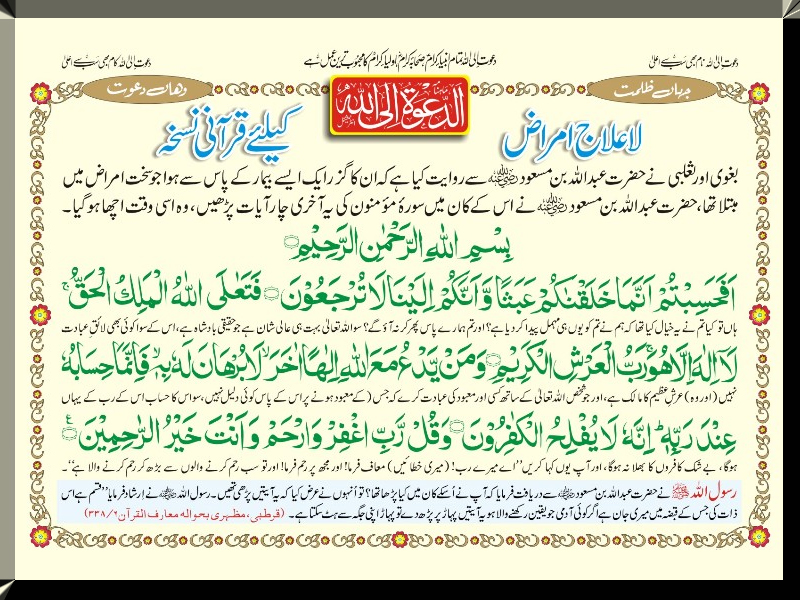 دعوت اِلی اللہ نام بھی سب سے اعلیٰ
دعوت اِلی اللہ تمام انبیاء کرامؑ، صحابہ کرامؓ، اولیاء کرامؒ کا محبوب ترین عمل ہے
دعوت اِلی اللہ کام بھی سب سے اعلیٰ
جہاں ظلمت
الدعوۃ الی اللہ
وھاں دعوت
لاعلاج امراض
کیلئے قرآنی نسخہ
بغوی اور ثعلبی نے حضرت عبداللہ بن مسعود رضی اللہ عنہ سے روایت کیا ہے کہ ان کا گزر ایک ایسے بیمار کے پاس سے ہوا جو سخت امراض میں
مبتلا تھا، حضرت عبداللہ بن مسعود رضی اللہ عنہ نے اس کے کان میں سورۂ مؤمنون کی یہ آخری چار آیات پڑھیں، وہ اسی وقت اچھا ہو گیا۔
بِسْمِ اللّٰهِ الرَّحْمٰنِ الرَّحِيْمِ
اَفَحَسِبْتُمْ اَنَّمَا خَلَقْنٰكُمْ عَبَثًا وَّاَنَّكُمْ اِلَيْنَا لَا تُرْجَعُوْنَ ۝ فَتَعٰلَى اللّٰهُ الْمَلِكُ الْحَقُّ ۚ
ہاں تو کیا تم نے یہ خیال کیا تھا کہ ہم نے تم کو یوں ہی مہمل پیدا کر دیا ہے؟ اور تم ہمارے پاس پھر کر نہ آؤ گے؟ سو اللہ تعالیٰ بہت ہی عالی شان ہے جو حقیقی بادشاہ ہے، اس کے سوا کوئی بھی لائقِ عبادت
لَآ اِلٰهَ اِلَّا هُوَ ۚ رَبُّ الْعَرْشِ الْكَرِيْمِ ۝ وَمَنْ يَّدْعُ مَعَ اللّٰهِ اِلٰهًا اٰخَرَ ۙ لَا بُرْهَانَ لَهٗ بِهٖ ۙ فَاِنَّمَا حِسَابُهٗ
نہیں (اور وہ) عرشِ عظیم کا مالک ہے، اور جو شخص اللہ تعالیٰ کے ساتھ کسی اور معبود کی عبادت کرے کہ جس (کے معبود ہونے پر اس کے پاس کوئی دلیل نہیں، سو اس کا حساب اس کے رب کے یہاں
عِنْدَ رَبِّهٖ ؕ اِنَّهٗ لَا يُفْلِحُ الْكٰفِرُوْنَ ۝ وَقُلْ رَّبِّ اغْفِرْ وَارْحَمْ وَاَنْتَ خَيْرُ الرّٰحِمِيْنَ ۝
ہوگا، بے شک کافروں کا بھلا نہ ہوگا، اور آپ یوں کہا کریں "اے میرے رب! (میری خطائیں) معاف فرما! اور مجھ پر رحم فرما! اور تو سب رحم کرنے والوں سے بڑھ کر رحم کرنے والا ہے"۔
رسول اللہ ﷺ نے حضرت عبداللہ بن مسعود رضی اللہ عنہ سے دریافت فرمایا کہ آپ نے اُسکے کان میں کیا پڑھا تھا؟ تو اُنہوں نے عرض کیا کہ یہ آیتیں پڑھی تھیں۔ رسول اللہ ﷺ نے اِرشاد فرمایا "قسم ہے اس
ذات کی جس کے قبضہ میں میری جان ہے اگر کوئی آدمی جو یقین رکھنے والا ہو یہ آیتیں پہاڑ پر پڑھ دے تو پہاڑ اپنی جگہ سے ہٹ سکتا ہے۔ (قرطبی، مظہری بحوالہ معارف القرآن ۶/۳۳۸)